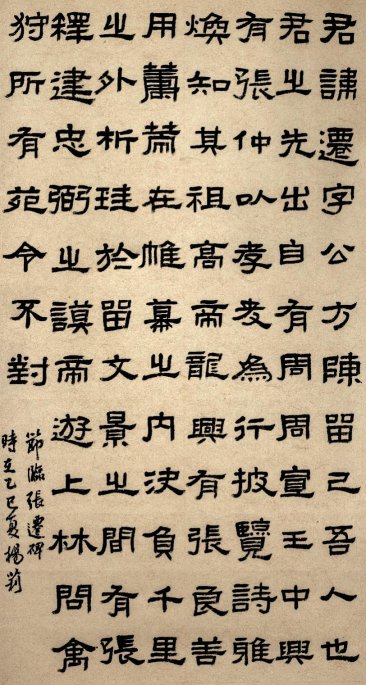 君諱遷字公方陳留己吾人也
君之先出自有周周宣王中興
有張仲以孝友為行披覽詩雅
煥知其祖高帝龍興有張良善
用籌策在帷幕之內決負千里
之外析珪於留文景之間有張
釋建忠弼之謨帝遊上林問禽
狩所有苑令不對
節臨張遷碑
時在乙巳夏楊莉